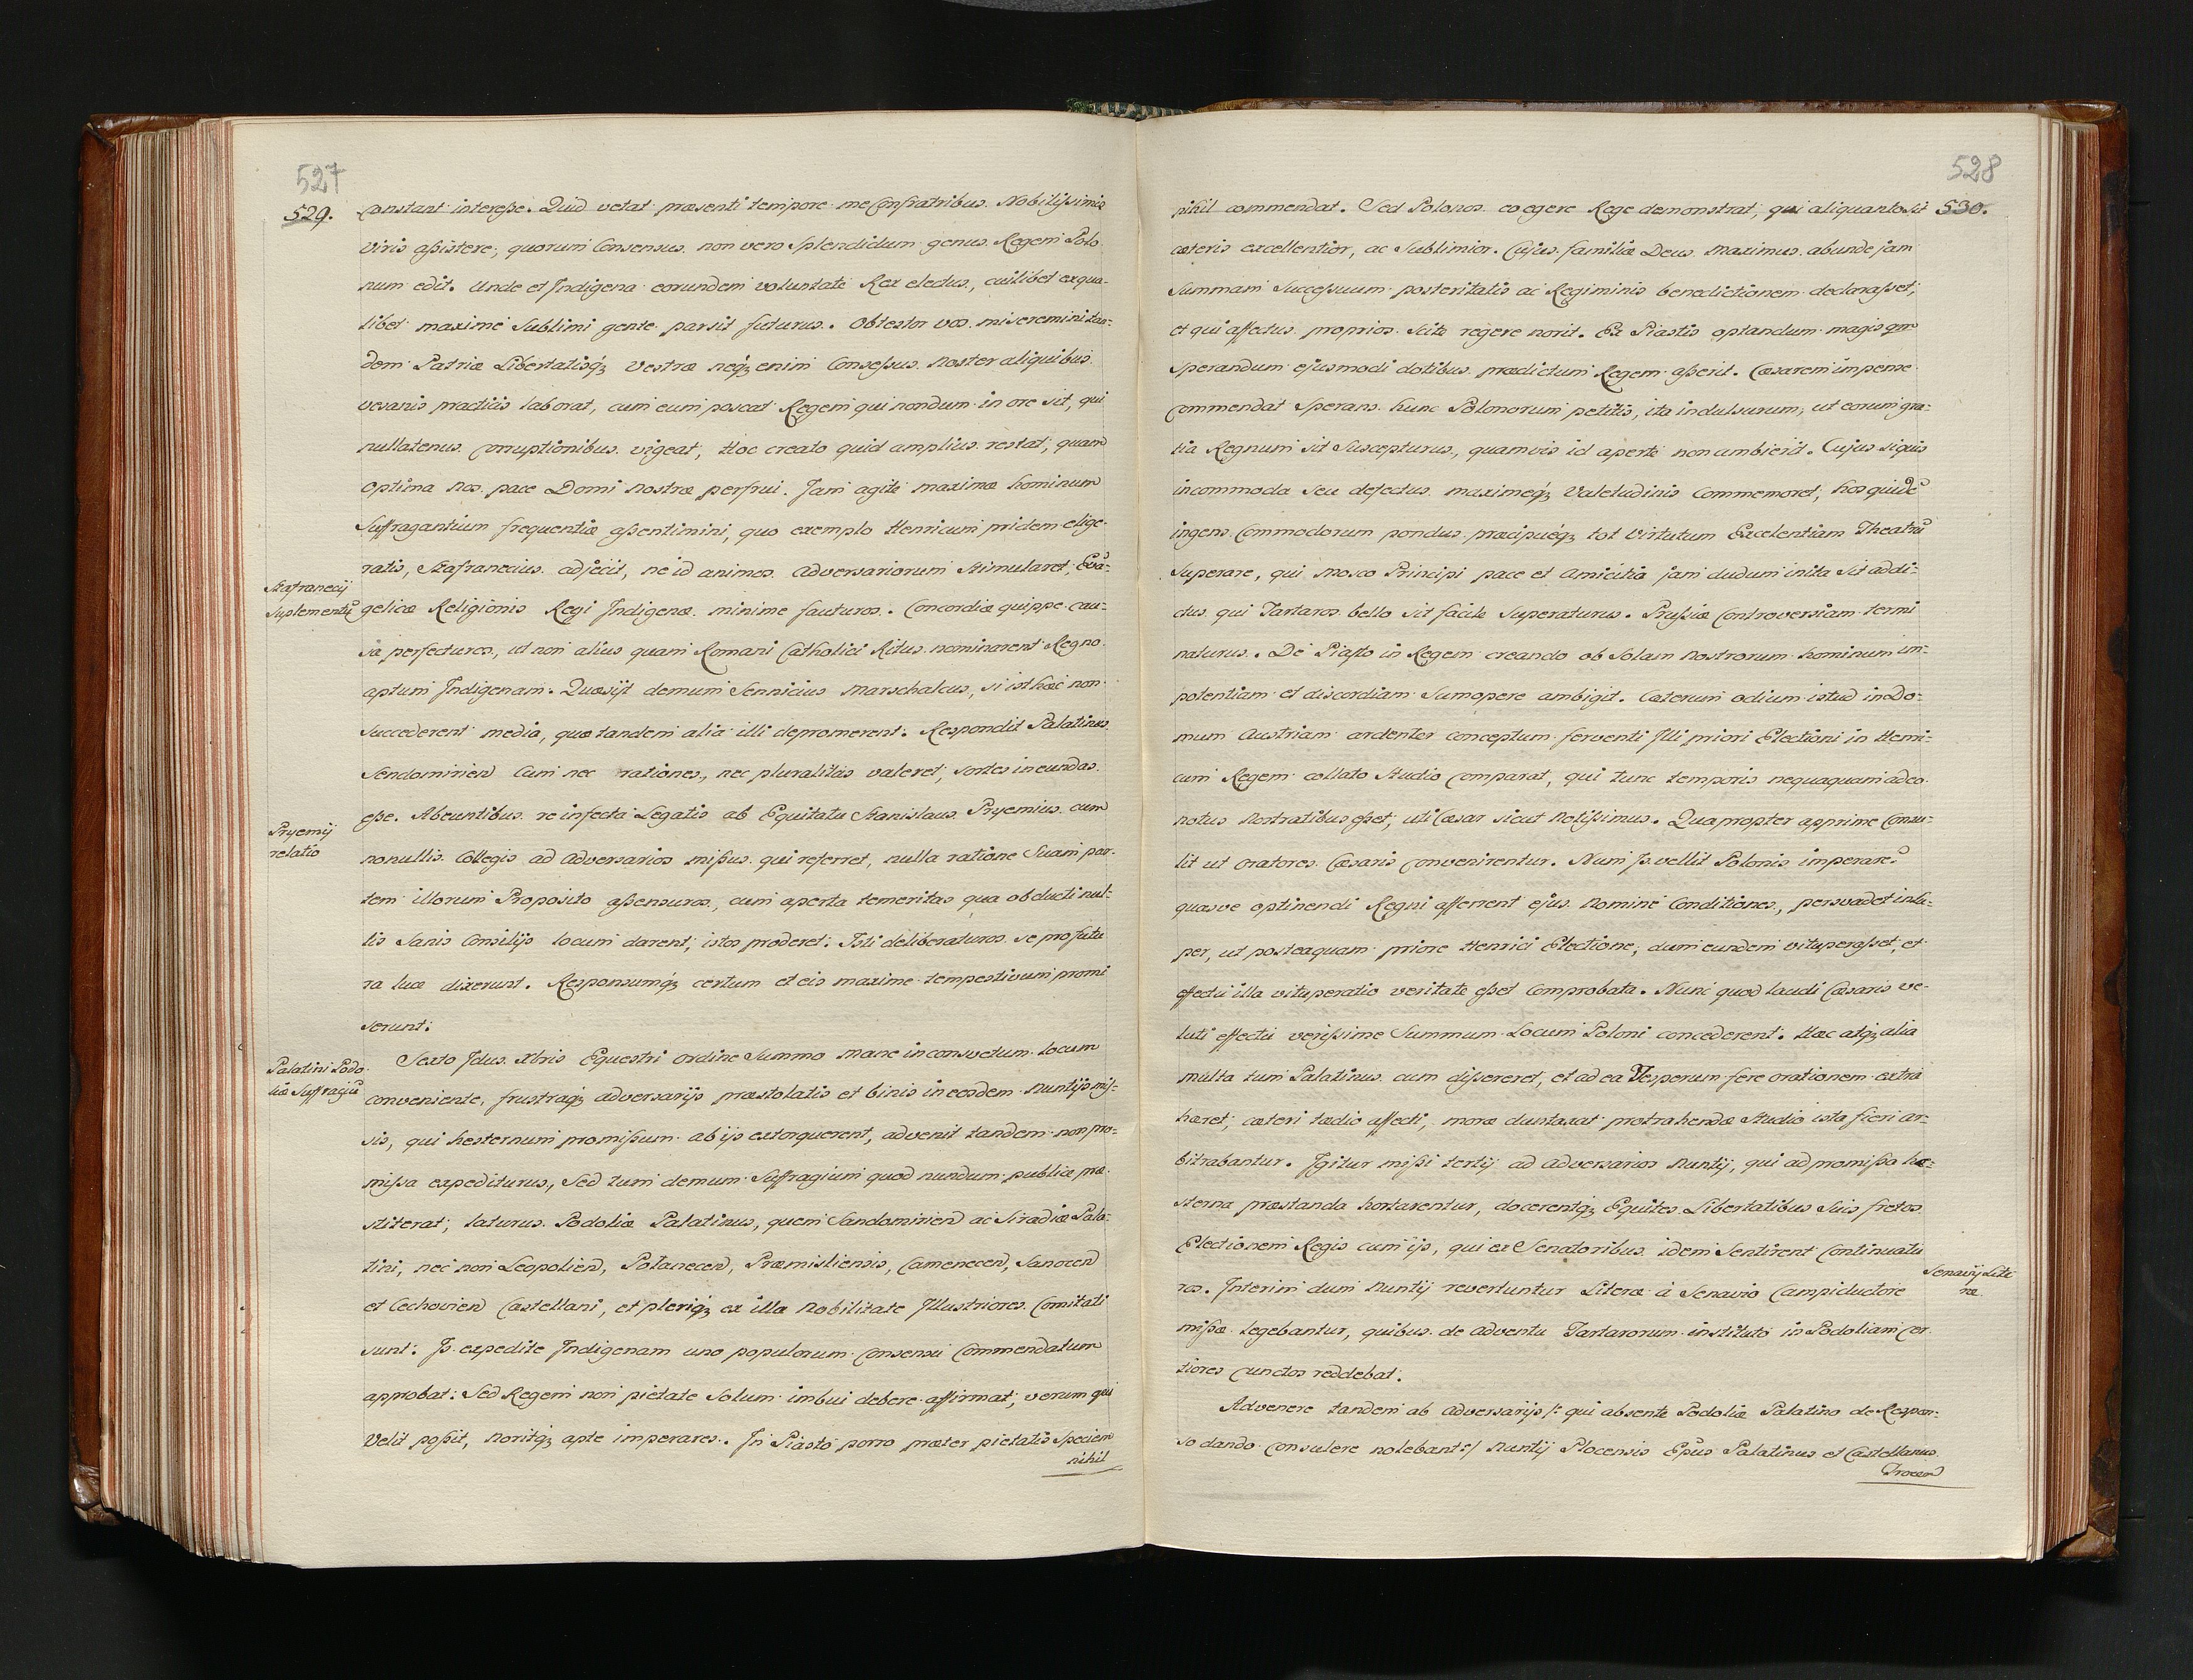 527
529.
Constant interesse. Quid vetat præsenti tempore me Confratribus Nobilissimis
Viris assistere, quorum Consensus non vero Splendidum genus Regem Polo
num edit. Unde et Indigena eorundem voluntate Rex electus, cuilibet ex qua-
libet maxime Sublimi gente par sit futurus. Obtestor vos miseremini tan-
dem Patriæ Libertatisq́ꝫ Vestræ neq́ꝫ enim Consessus Noster aliquibus
vesanis practicis laborat, cum eum poscat Regem qui nondum in ore sit, qui
nullatenus Corruptionibus vigeat, Hoc creato quid amplius restat, quam
Optima nos pace Domi Nostræ perfrui. Jam agite maximæ hominum
Suffragantium frequentiæ assentimini, quo exemplo Henricum pridem elige-
ratis, Szafranecius adjecit, ne id animos Adversariorum Stimularet, Evã-
Szafranecij
Suplementũ
gelicæ Religionis Regi Indigenæ minime fauturos. Concordiæ quippe cau-
sa perfecturos, ut non alius quam Romani Catholici Ritus nominarent Regno
aptum Indigenam. Quæsijt demum Sennicius Marschalcus, si isthæc non
succederent media, quæ tandem alia illi depromerent. Respondit Palatinus
Sendomirien Cum nec rationes, nec pluralitas valeret, sortes ineundas
esse. Abeuntibus re infecta Legatis ab Equitatu Stanislaus Pryemius cum
Pryemij
relatio
nonullis Collegis ad Adversarios missus qui referret, nulla ratione Suam par-
tem illorum Proposito assensuros, cum aperta temeritas qua obducti nul-
lis Sanis Consilijs locum darent, istos proderet. Isti deliberaturos se pro futu
ra luce dixerunt. Responsumq́ꝫ certum et eis maxime tempestivum promi
serunt.
Sexto Idus Xbris Equestri Ordine Summo Mane in consvetum locum
Palatini Podo
liæ Suffragiũ
conveniente, frustraq́ꝫ adversarijs præstolatis et binis in eosdem Nuntijs mis-
sis, qui hesternum promissum ab ijs extorquerent, advenit tandem non pro-
missa expediturus, Sed tum demum Suffragium quod nundum publice præ
stiterat, laturus Podoliæ Palatinus, quem Sandomirien ac Siradiæ Pala-
tini, nec non Leopolien, Polanecen, Præmisliensis, Camenecen, Sanocen
et Cechovien Castellani, et pleriq́ꝫ ex illa Nobilitate Illustriores Comitati
sunt. Is expedite Indigenam uno populorum Consensu Commendatum
approbat: Sed Regem non pietate Solum imbui debere affirmat, verum qui
Velit possit, noritq́ꝫ apte imperares. In Piasto porro præter pietatis Speciem
nihil
528
530.
nihil commendat. Sed Polonos eo egere Rege demonstrat, qui aliquanto sit
cæteris excellentior, ac Sublimior. Cujus familiæ Deus Maximus abunde jam
Summam Successuum posteritatis ac Regiminis benedictionem declarasset,
et qui affectus proprios Scite regere norit. Ex Piastis optandum magis qm
Sperandum ejusmodi dotibus prædictum Regem asserit. Cæsarem impense
Commendat Sperans hunc Polonorum petitis, ita indulsurum, ut eorum gra-
tia Regnum sit Suscepturus, quamvis id aperte non ambierit. Cujus siquis
incommoda seu defectus maximeq́ꝫ Valetudinis Commemoret, hos quidẽ
ingens Commodorum pondus præcipuéq́ꝫ tot Virtutum Excelentiam Theatrũ
Superare, qui Mosco Principi pace et Amicitia jam dudum inita sit addi-
ctus, qui Tartaros bello sit facile Superaturus. Prussiæ Controversiam termi
naturus. De Piasto in Regem creando ob Solam Nostrorum hominum im-
potentiam et discordiam Sumopere ambigit. Cæterum odium istud in Do-
mum Austriam ardenter conceptum ferventi Illi priori Electioni in Henri-
cum Regem collato Studio Comparat, qui tunc temporis nequaquam adeo
notus Nostratibus esset, uti Cæsar sicut Notissimus. Quapropter apprime Consu-
lit ut Oratores Cæsaris Convenirentur. Num Is vellit Polonis imperare?
quasve optinendi Regni afferrent ejus Nomine Conditiones, persvadet insu-
per, ut posteaquam priore Henrici Electione, dum eundem vituperasset, et
effectu illa vituperatio veritate esset Comprobata. Nunc quod laudi Cæsaris ve-
luti effectu verissime Summum Locum Poloni concederent. Hæc atq́ꝫ alia
multa tum Palatinus cum dissereret, et ad ea Vesperum fere orationem extra
heret, cæteri tædio affecti, moræ duntaxat protrahendæ Studio ista fieri ar-
bitrabantur. Igitur missi tertij ad Adversarios Nuntij, qui ad promissa he-
sterna præstanda hortarentur, docerentq́ꝫ Equites Libertatibus Suis fretos
Electionem Regis cum ijs, qui ex Senatoribus idem Sentirent Continuatu
ros. Interim dum Nuntij revertuntur Literæ a Senavio Campiductore
Senavij Lite
ræ
missæ legebantur, quibus de Adventu Tartarorum instituto in Podoliam Cer
tiores Cunctos reddebat.
Advenere tandem ab Adversarijs /: qui absente Podoliæ Palatino de Respon-
so dando Consulere nolebant :/ Nuntij Plocensis Epus Palatinus et Castellanus
Trocen